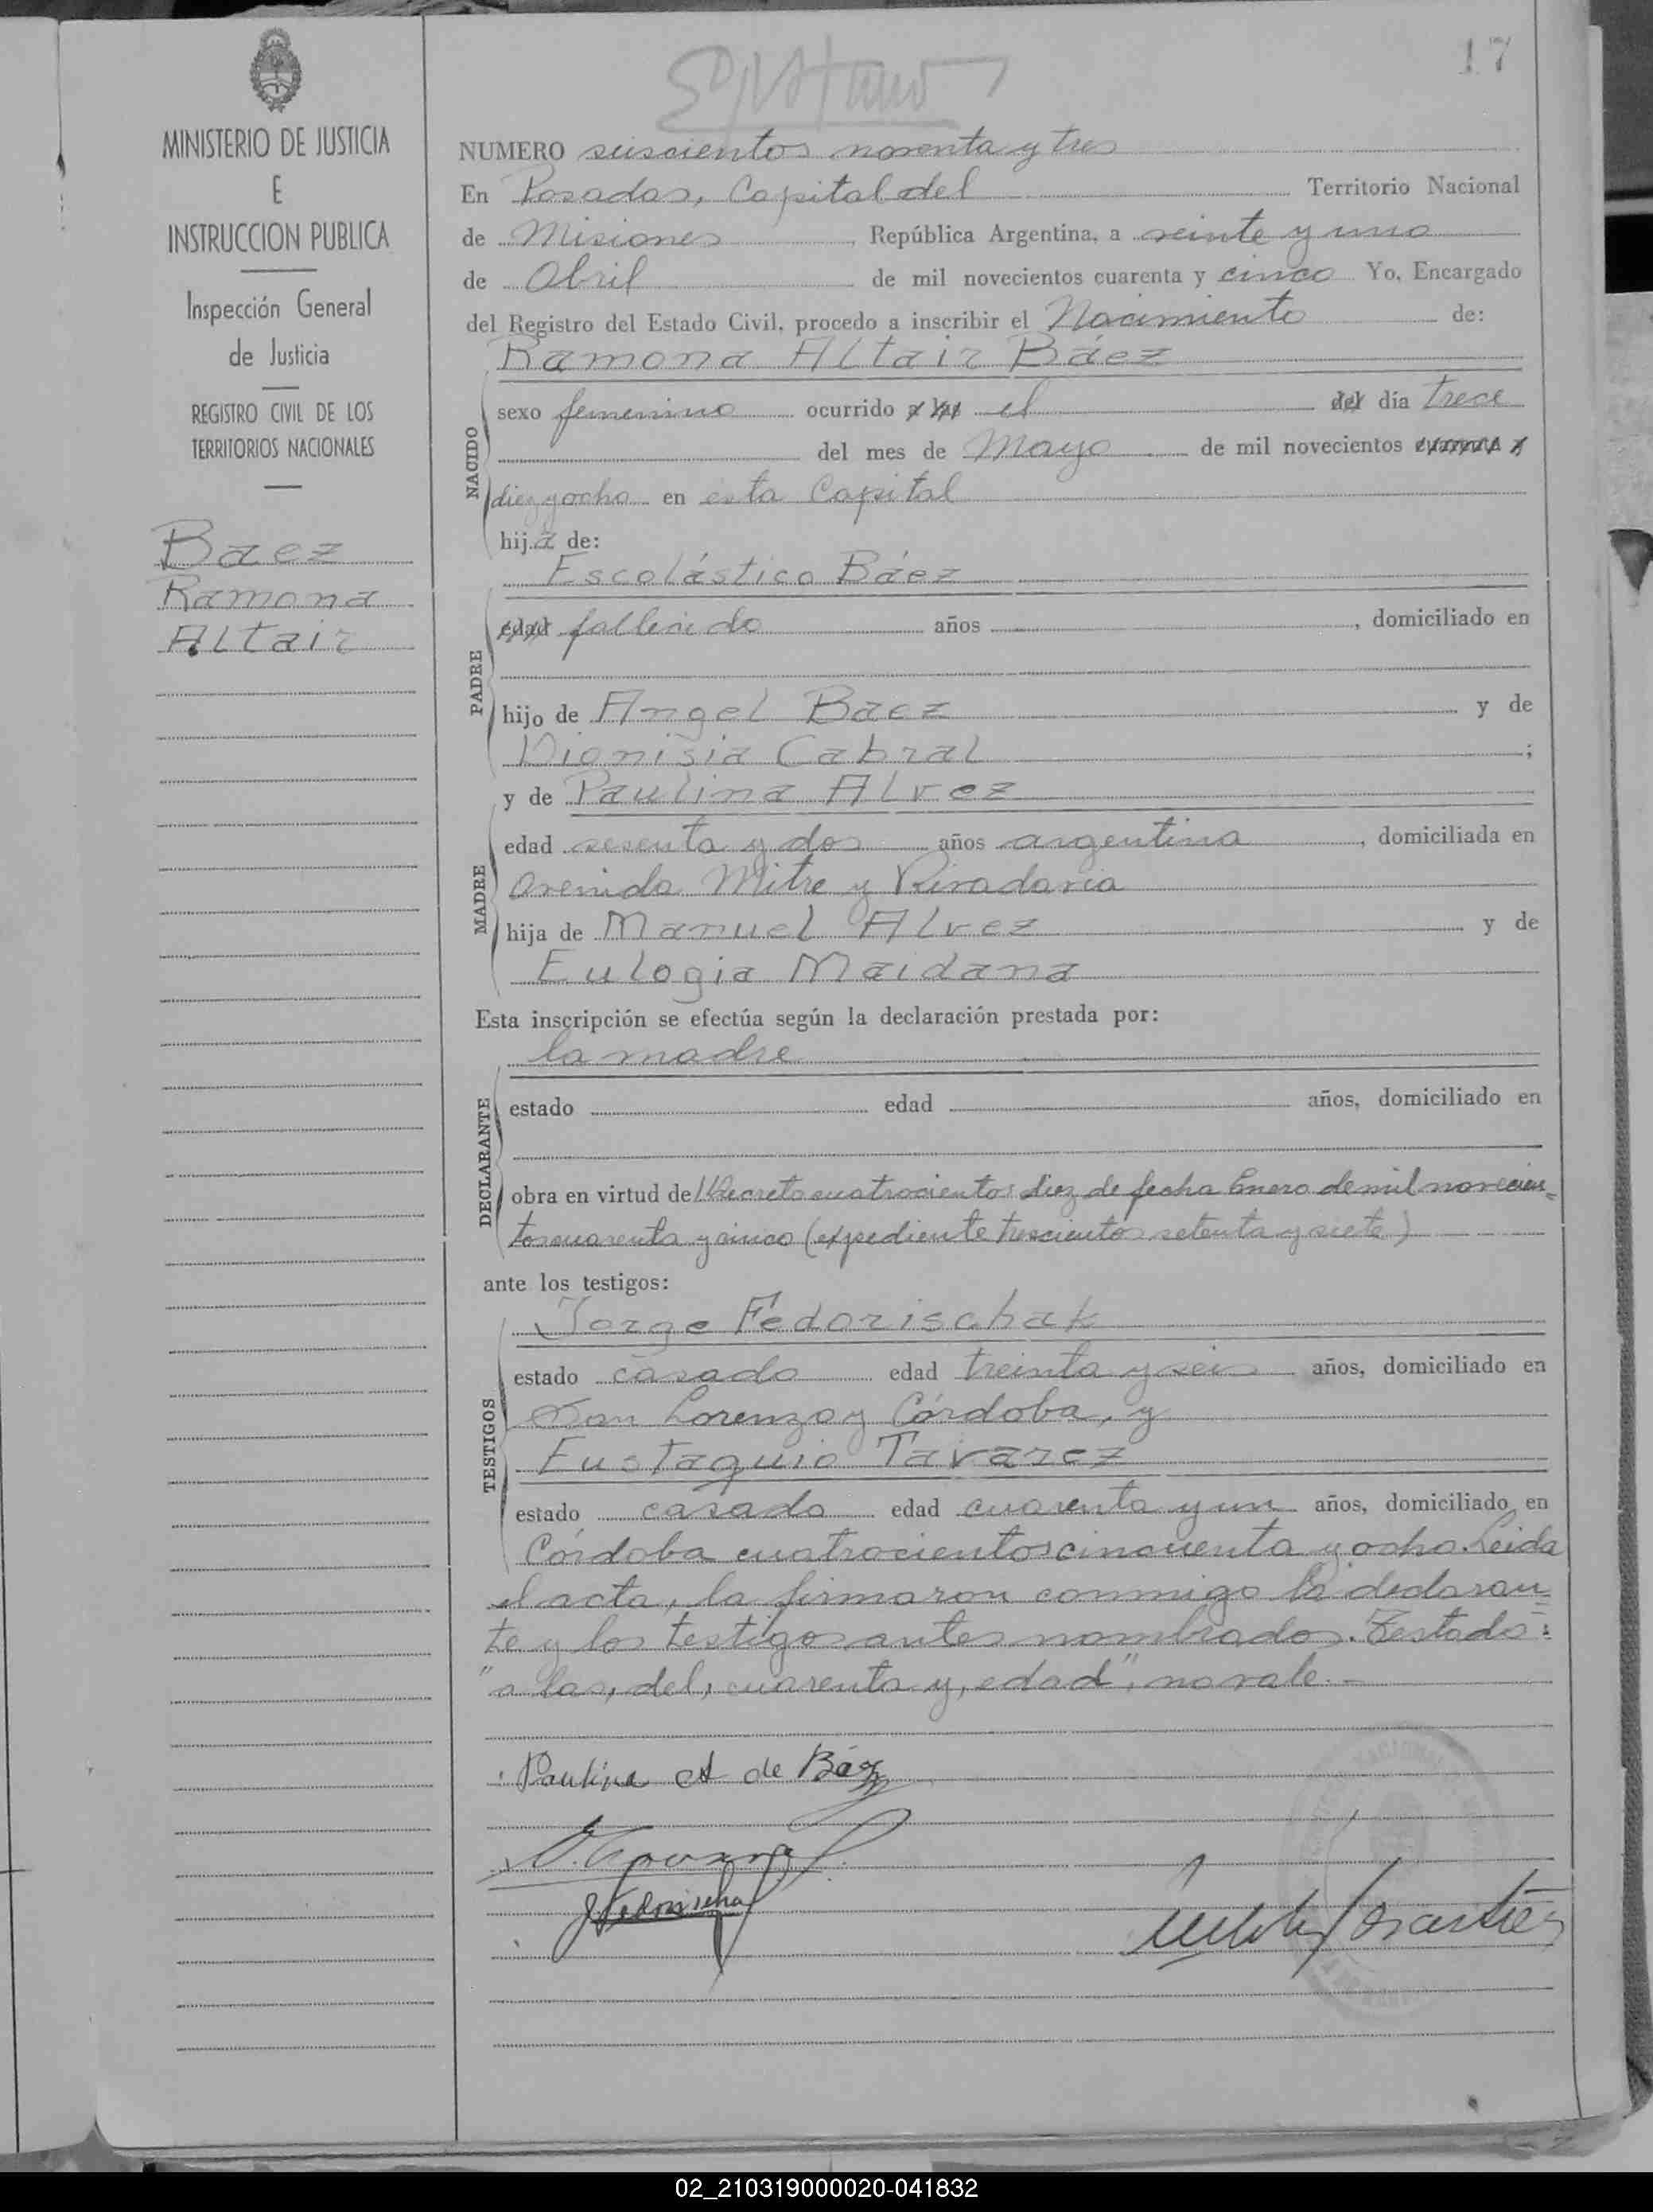 17
MINISTERIO DE JUSTICIA
E
INSTRUCCION PUBLICA
Inspección General
de Justicia
REGISTRO CIVIL DE LOS
TERRITORIOS NACIONALES
Baez
Ramona
Altair
NUMERO seiscientos noventa y tres
En Posadas, Capital del Territorio Nacional
de Misiones, República Argentina, a veinte y uno
de Abril de mil novecientos cuarenta y cinco Yo, Encargado
del Registro del Estado Civil, procedo a inscribir el Nacimiento de:
Ramona Altair Báez
NACIDO
sexo femenino ocurrido a las el del día trece
del mes de Mayo de mil novecientos cuarenta y
diez y ocho en esta Capital
hija de:
Escolástico Báez
PADRE
edad fallecido años, domiciliado en
hijo de Angel Baez y de
Dionisia Cabral;
y de Paulina Alvez
MADRE
edad sesenta y dos años argentina, domiciliada en
Avenida Mitre y Rivadavia
hija de Manuel Alvez y de
Eulogia Maidana
Esta inscripción se efectúa según la declaración prestada por:
la madre
DECLARANTE
estado edad años, domiciliado en
obra en virtud del Decreto cuatrocientos diez de fecha Enero de mil novecien-
tos cuarenta y cinco (expediente trescientos setenta y siete)
ante los testigos:
Jorge Fedorischak
TESTIGOS
estado casado edad treinta y seis años, domiciliado en
San Lorenzo y Córdoba, y
Eustaquio Tavarez
estado casado edad cuarenta y un años, domiciliado en
Córdoba cuatrocientos cincuenta y ocho. Leida
el acta, la firmaron conmigo la declaran=
te y los testigos antes nombrados. Testado:
"a las, del, cuarenta y, edad", no vale.-
Paulina A de Báez
02_210319000020-041832